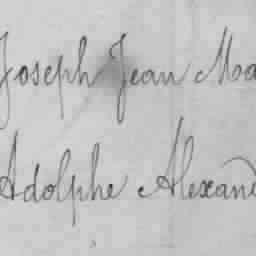 Joseph Jean Ma
Adolphe Alexand